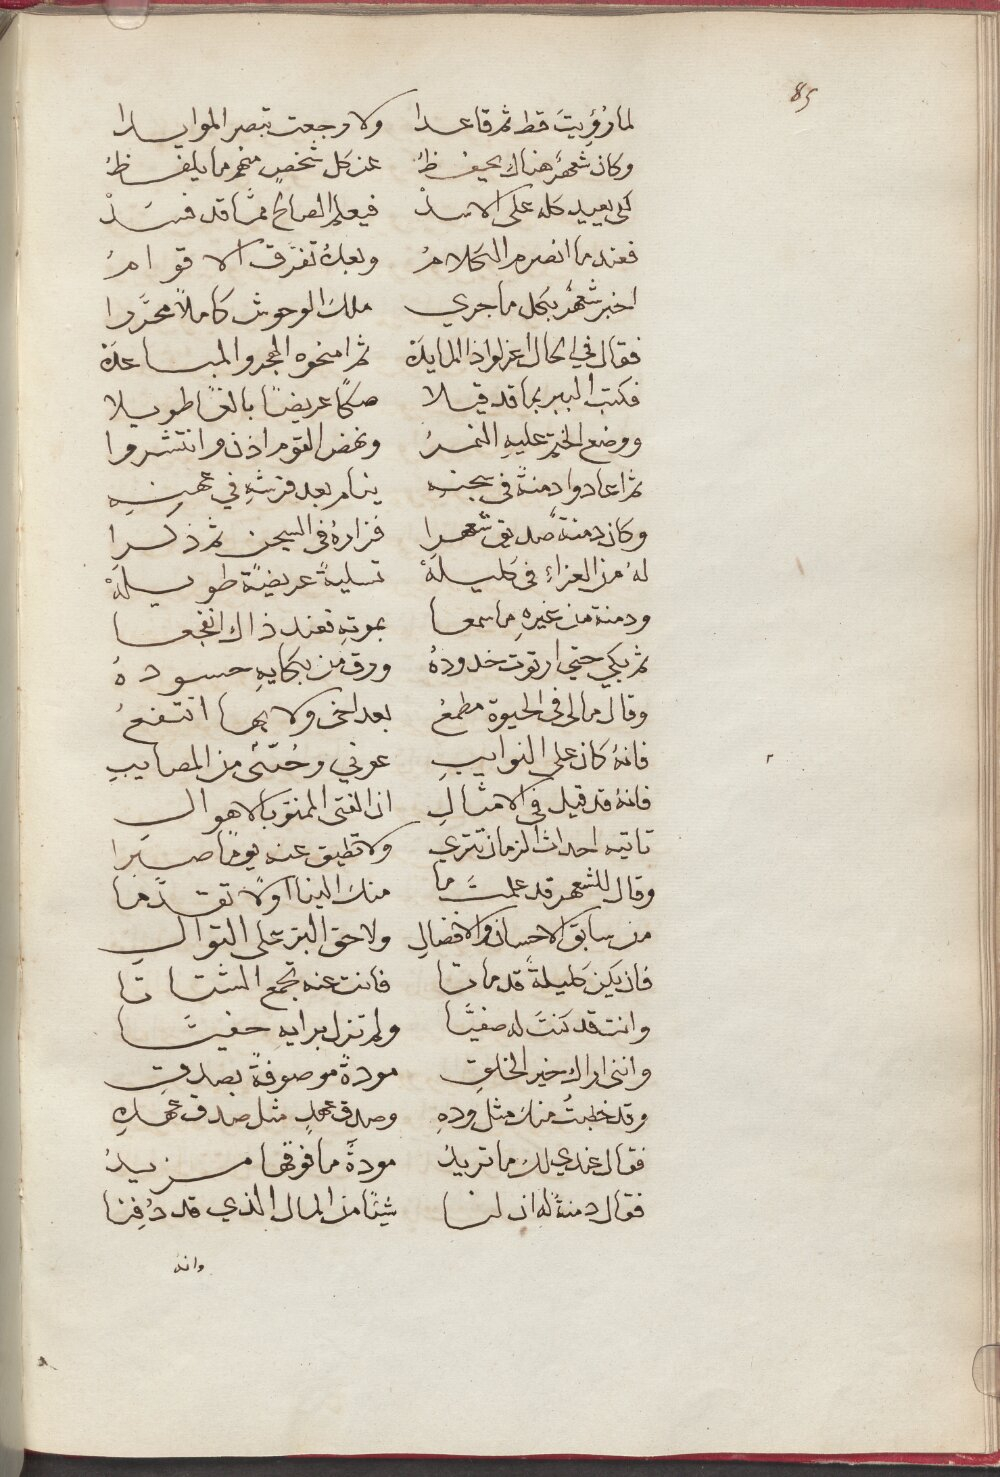 85
لما رُؤِيتَ قط ثم قاعدا ولا رجعت تبصر الموايدا
وكان شعهرٌ هناك يحفظُ عن كل شخصٍ منهم ما يلفظُ
لكي يعيد كله على الاسدْ فيعلم الصالح مما قد فسَدْ
فعند ما انصرم الكلامُ وبعدهُ تفرَّق الاقوامُ
اخبر شعهرٌ بكل ما جري ملك الوحوش كاملاً محرَّرا
فقال في الحال اعزلوا ذا المايدة ثم امنحوه الهجر والمباعدة
فكتب الببر بما قد قيلا صكًا عريضًا بالغًا طويلا
ووضع الختم عليهِ النمرُ ونهض القوم اذن وانتشروا
ثم اعادوا دمنةً في سجنهِ ينام بعد فرشهِ في عهنهِ
وكان دمنة صديق شعهرا فزارهُ في السجن ثم ذكرا
لهُ من العزاء في كليلةْ تسليةً عريضةً طويلةْ
ودمنة من غيرهِ ما سمعا بموتهِ فعند ذاك انفجعا
ثم بكي حتي ارتوت خدودهُ ورق من بكايهِ حسودهُ
وقال مالى في الحيوة مطمعُ بعد اخى ولا بها انتفعُ
فانهُ كان على النوايبِ عوني وجُنّتى من المصايبِ
فانهُ قد قيل في الامثالِ ان الفتى الممنوّ بالاهوالِ
تاتيه احداث الزمان تتري ولا تطيق عنه يومًا صبرا
وقال للشعهر قد علمتَ ما منك الينا اولاً تقدَّما
من سابق الاحسان والافضالِ ولاحق البرّ على التوالي
فان يكن كليلةً قد ماتا فانت عنه تجمع الشتاتا
وانت قد كنتَ له صفيَّا ولم تزل برايهِ حفيَّا
واننى اراك خير الخلقِ مودةً موصوفةً بصدقِ
وقد خطبتُ منك مثل ودهِ وصدق عهدٍ مثل صدق عهدهِ
فقال عندي لك ما تريدُ مودةً ما فوقها مزيدُ
فقال دمنةُ له ان لنا شيئًا من المال الذي قد دُفِنا
وانه